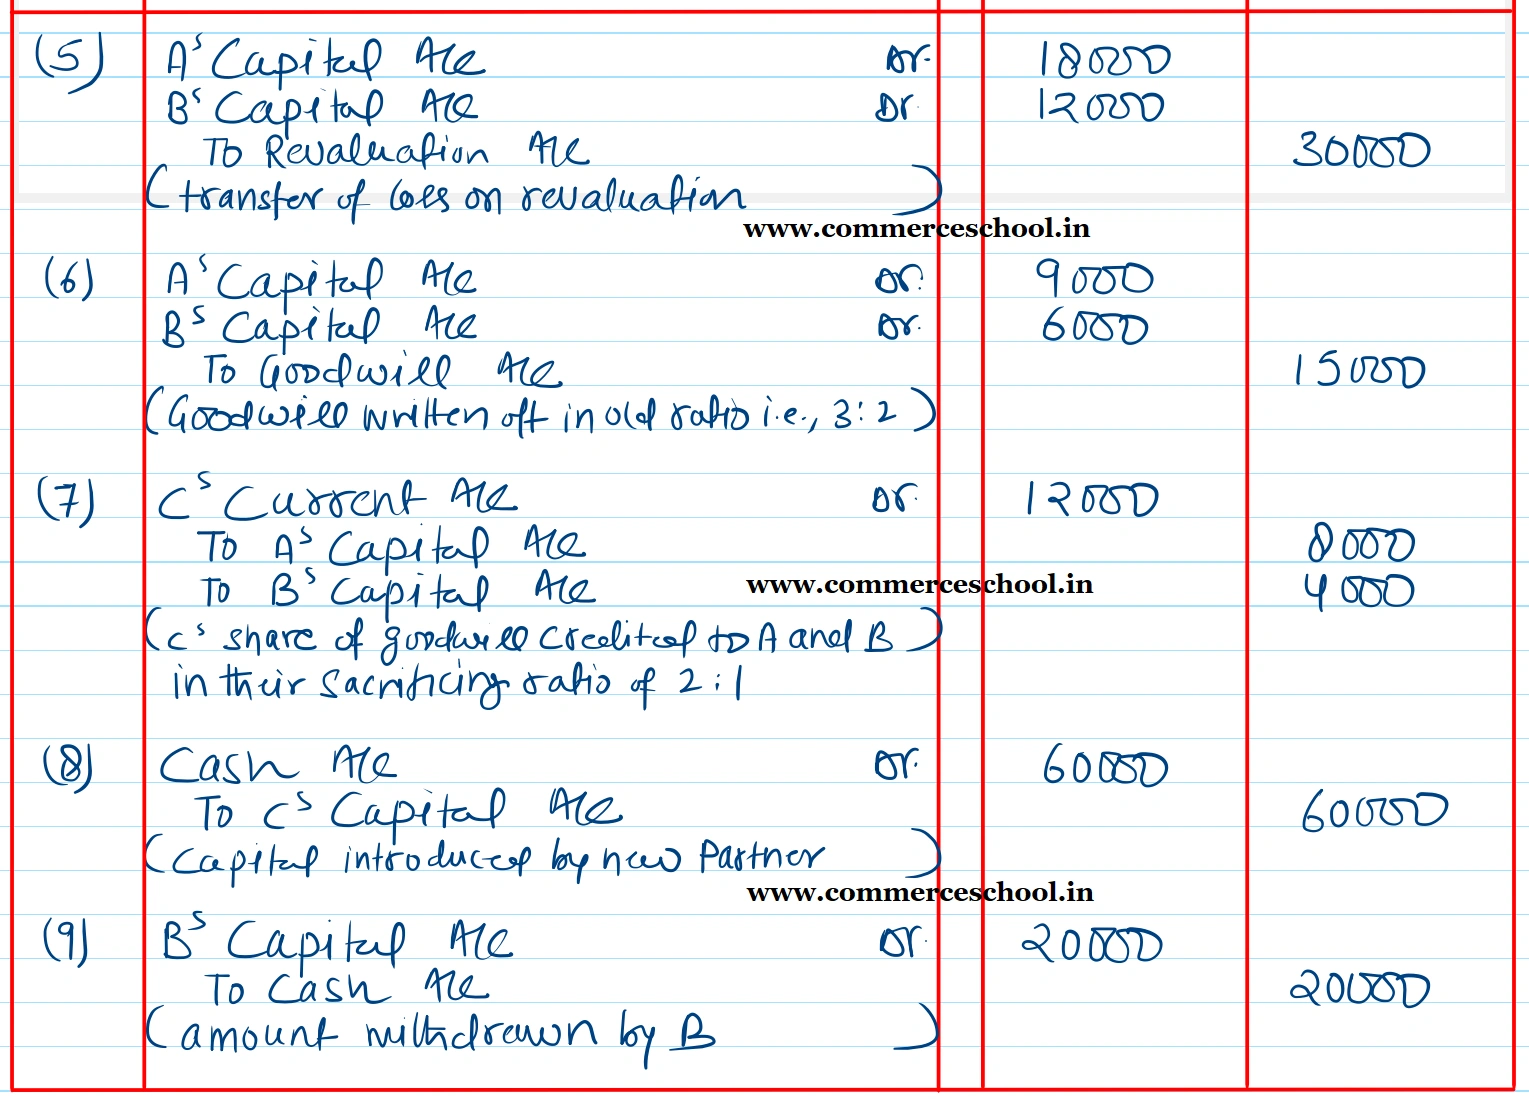 (5) A's Capital A/c Dr. 18000
B's Capital A/c Dr. 12000
To Revaluation A/c 30000
(transfer of loss on revaluation)
www.commerceschool.in
(6) A's Capital A/c Dr. 9000
B's Capital A/c Dr. 6000
To Goodwill A/c 15000
(Goodwill written off in old ratio i.e., 3:2)
(7) C's Current A/c Dr. 12000
To A's Capital A/c 8000
To B's Capital A/c www.commerceschool.in 4000
(C's share of goodwill credited to A and B)
in their sacrificing ratio of 2:1
(8) Cash A/c Dr. 60000
To C's Capital A/c 60000
(Capital introduced by new Partner)
www.commerceschool.in
(9) B's Capital A/c Dr. 20000
To Cash A/c 20000
(amount withdrawn by B)